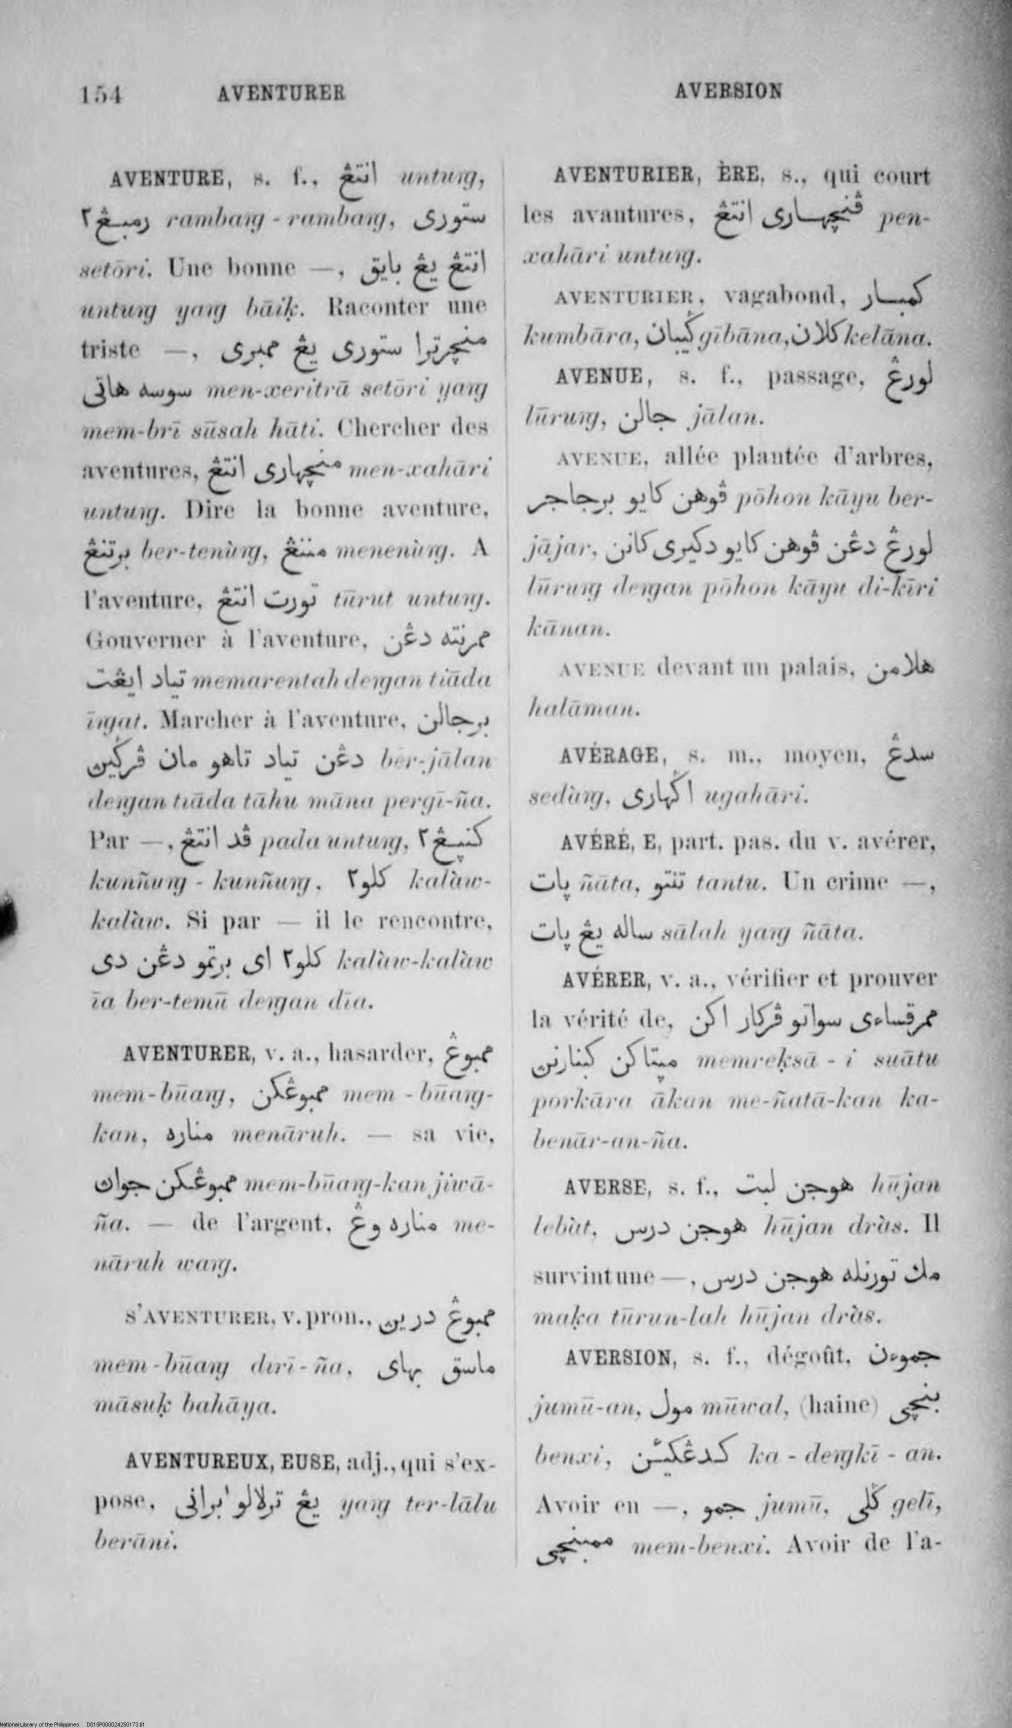 154 AVENTURER AVERSION
AVENTURE, s. f., انتڠ untuṅg,
رمبڠ٢ rambaṅg-rambaṅg, ستوري
setōri. Une bonne —, انتڠ يڠ بايق
untuṅg yaṅg bāiḳ. Raconter une
triste —, منچرترا ستوري يڠ ممبري
سوسه هاتي men-xeritrā setōri yaṅg
mem-brī sūsah hāti. Chercher des
aventures, منچهاري انتڠ men-xahāri
untuṅg. Dire la bonne aventure,
برتنڠ ber-tenùṅg, مننڠ menenùṅg. A
l'aventure, تورت انتڠ tūrut untuṅg.
Gouverner à l'aventure, ممرنته دڠن
تياد ايڠت memarentah deṅgan tiāda
īṅgat. Marcher à l'aventure, برجالن
دڠن تياد تاهو مان ڤرگين ber-jālan
deṅgan tiāda tāhu māna pergī-ña.
Par —, ڤد انتڠ pada untuṅg, كنڽڠ٢
kunñuṅg-kunñuṅg, كلو٢ kalàw-
kalàw. Si par — il le rencontre,
كلو٢ اي برتمو دڠن دي kalàw-kalàw
īa ber-temū deṅgan dīa.
AVENTURER, v. a., hasarder, ممبوڠ
mem-būaṅg, ممبوڠكن mem-būaṅg-
kan, مناره menāruh. — sa vie,
ممبوڠكن جوان mem-būaṅg-kan jiwā-
ña. — de l'argent, مناره وڠ me-
nāruh waṅg.
S'AVENTURER, v. pron., ممبوڠ درين
mem-būaṅg dirī-ña, ماسق بهاي
māsuḳ bahāya.
AVENTUREUX, EUSE, adj., qui s'ex-
pose, يڠ ترلالو براني yaṅg ter-lālu
berāni.
AVENTURIER, ÈRE, s., qui court
les avantures, ڤنچهاري انتڠ pen-
xahāri untuṅg.
AVENTURIER, vagabond, كمبار
kumbāra, گيبان gībāna, كلان kelāna.
AVENUE, s. f., passage, لورڠ
lūruṅg, جالن jālan.
AVENUE, allée plantée d'arbres,
ڤوهن كايو برجاجر pōhon kāyu ber-
jājar, لورڠ دڠن ڤوهن كايو دكيري كانن
lūruṅg deṅgan pōhon kāyu di-kīri
kānan.
AVENUE devant un palais, هلامن
halāman.
AVÉRAGE, s. m., moyen, سدڠ
sedàṅg, اگهاري ugahāri.
AVÉRÉ, E, part. pas. du v. avérer,
ڽات ñāta, تنتو tantu. Un crime —,
ساله يڠ ڽات sālah yaṅg ñāta.
AVÉRER, v. a., vérifier et prouver
la vérité de, ممرقساءي سواتو ڤركار اكن
مڽتاكن كبنارنن memreḳsā-i suātu
porkāra ākan me-ñatā-kan ka-
benār-an-ña.
AVERSE, s. f., هوجن لبت hūjan
lebàt, هوجن درس hūjan dràs. Il
survint une —, مك تورنله هوجن درس
maḳa tūrun-lah hūjan dràs.
AVERSION, s. f., dégoût, جموءن
jumū-an, مول mūwal, (haine) بنچي
benxi, كدڠكيئن ka-deṅgkī-an.
Avoir en —, جمو jumū, گلي gelī,
ممبنچي mem-benxi. Avoir de l'a-
National Library of the Philippines